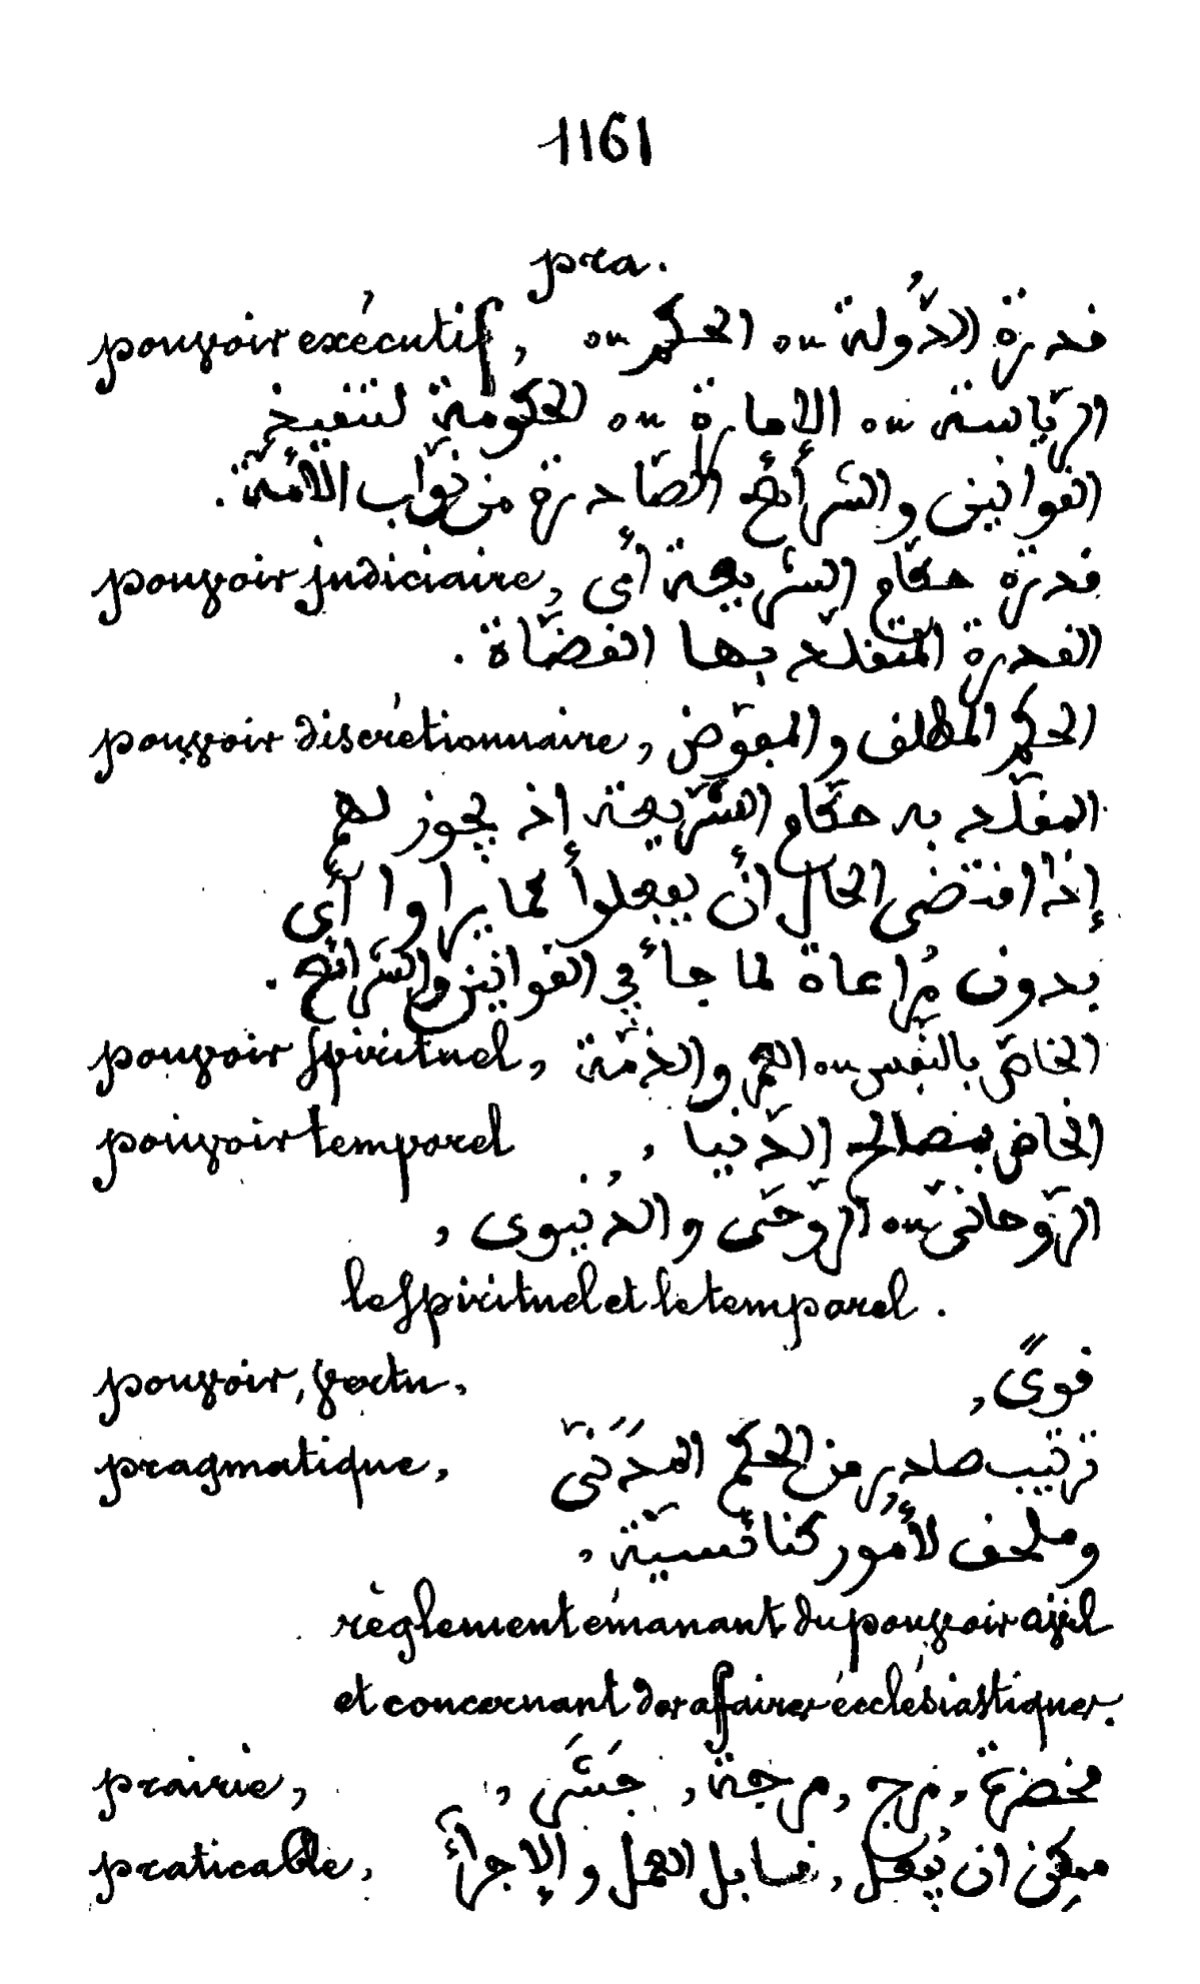 1161
pra.
pouvoir exécutif, قدرة الدُّولة ou الحكم ou
الرّياسة ou الإمارة ou الحكومة لتنفيذ
القوانين والشرأئع الصّادرة من نوّاب الأمّة.
pouvoir judiciaire, قدرة حكّام الشّريعة أي
القدرة المتقلّد بها القضّاة.
pouvoir discrétionnaire, الحكم المطلق والمفوّض
المقلّد به حكّام الشّريعة إذ يجوز لهم
إذا اقتضى الحال أن يفعلوأ مما يراوا أي
بدون مُراعاة لما جأ في القوانين والشرائع.
pouvoir spirituel, الخاصّ بالنّفس ou والذمّة
pouvoir temporel الخاصّ بمصالح الدّنيا,
الرّوحانىّ ou الرّوحى والدُنيوى,
le spirituel et le temporel.
pouvoir, vertu. قوىً,
pragmatique, ترتيب صادر من الحكم المَدَنىّ
وملحق لأمُور كنائسيّة,
règlement émanant du pouvoir civil
et concernant des affaires écclésiastiques.
prairie, مخضرة, مرج, مرجة, جَشَر,
praticable, ممكن ان يُفعل, قابل العمل والإجرأَ